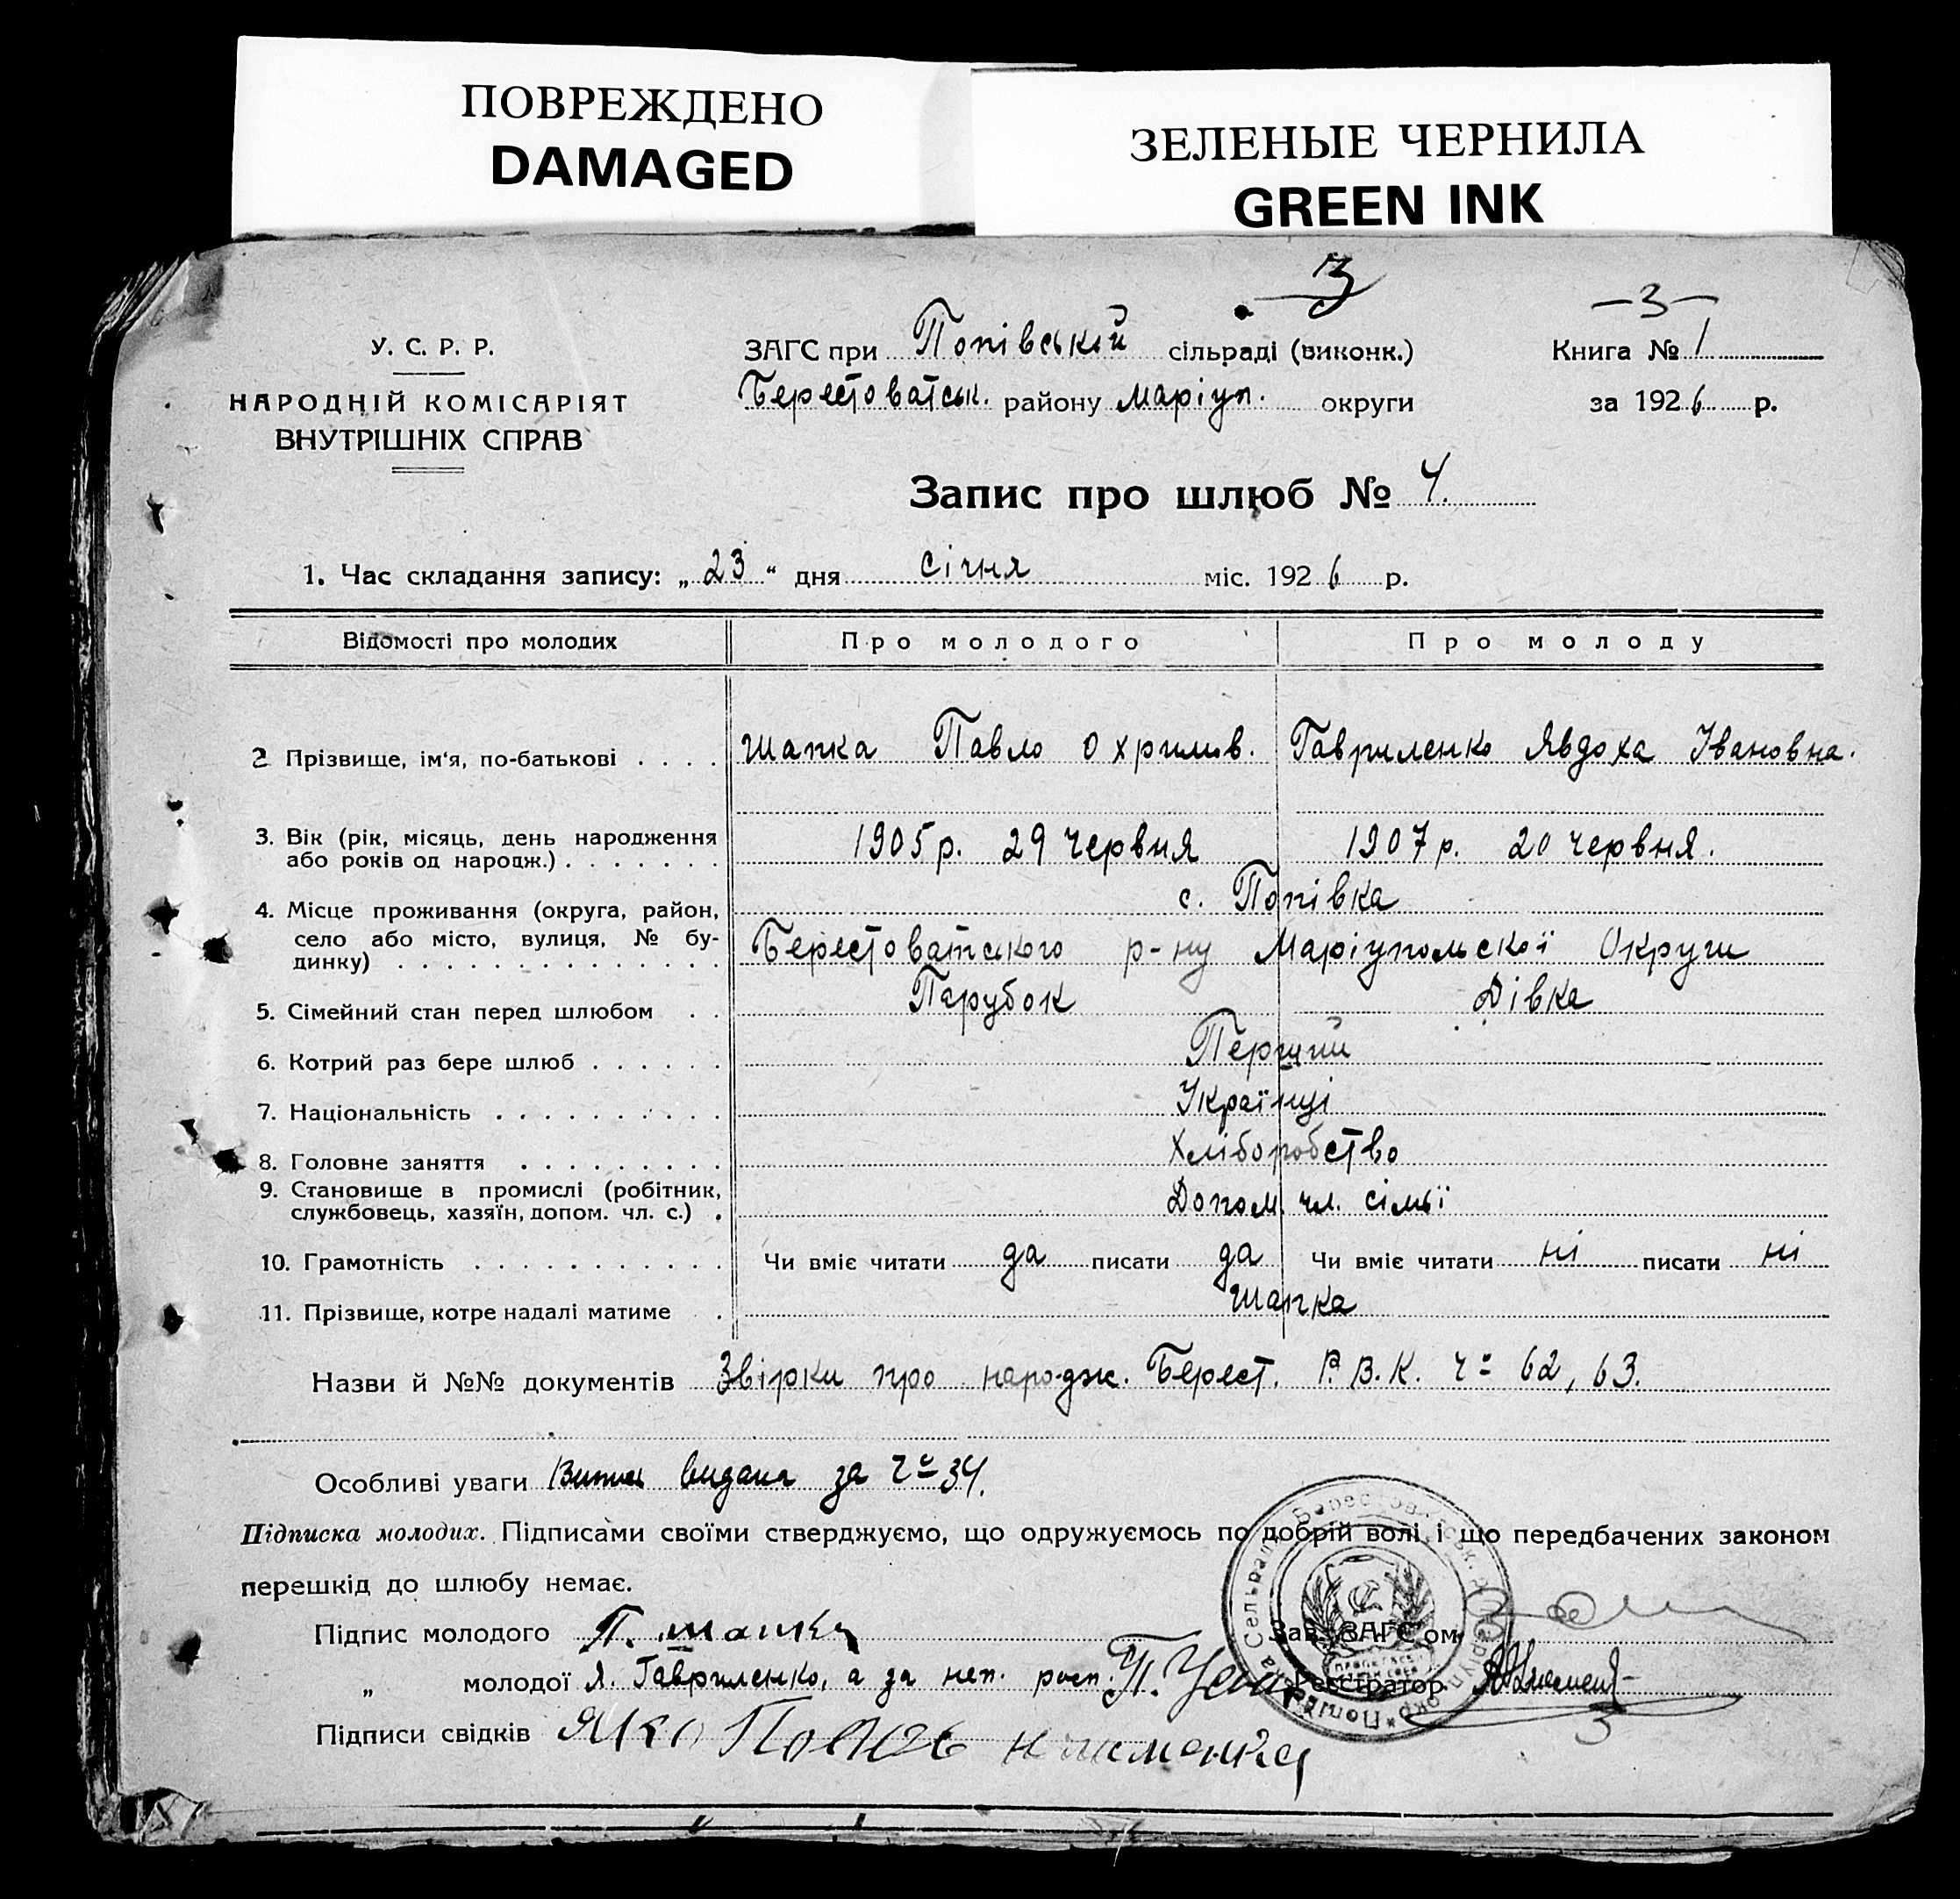 ПОВРЕЖДЕНО
DAMAGED
ЗЕЛЕНЫЕ ЧЕРНИЛА
GREEN INK
3
—3—
У. С. Р. Р.
НАРОДНІЙ КОМІСАРІЯТ
ВНУТРІШНІХ СПРАВ
ЗАГС при Попівській сільраді (виконк.)
Берестоватськ. району Маріуп. округи
Книга № 1
за 1926 р.
Запис про шлюб № 4.
1. Час складання запису: „ 23 “ дня січня міс. 1926 р.
Відомості про молодих Про молодого Про молоду
2 Прізвище, ім'я, по-батькові . . . . Шапка Павло Охримів. Гавриленко Явдоха Івановна.
3. Вік (рік, місяць, день народження
або років од народж.) . . . . . . . 1905 р. 29 червня 1907 р. 20 червня.
4. Місце проживання (округа, район, с. Попівка
село або місто, вулиця, № бу-
динку) . . . . . . . . . . . . . . Берестоватського р-ну Маріупольської Округи
5. Сімейний стан перед шлюбом . . Парубок Дівка
6. Котрий раз бере шлюб . . . . . . Перший
7. Національність . . . . . . . . . . Українці
8. Головне заняття . . . . . . . . . Хліборобство
9. Становище в промислі (робітник,
службовець, хазяїн, допом. чл. с.) . Допом. чл. сімьї
10. Грамотність . . . . . . . . . . . Чи вміє читати да писати да Чи вміє читати ні писати ні
11. Прізвище, котре надалі матиме . Шапка
Назви й №№ документів Звірки про народж. Берест. Р.В.К. ч= 62, 63.
Особливі уваги видана за ч= 34.
Підписка молодих. Підписами своїми стверджуємо, що одружуємось по добрій волі, і що передбачених законом
перешкід до шлюбу немає.
Підпис молодого П. Шапка
Зав. ЗАГС'ом
„ молодої Я. Гавриленко, а за неп. росп. П.
Реєстратор
Підписи свідків